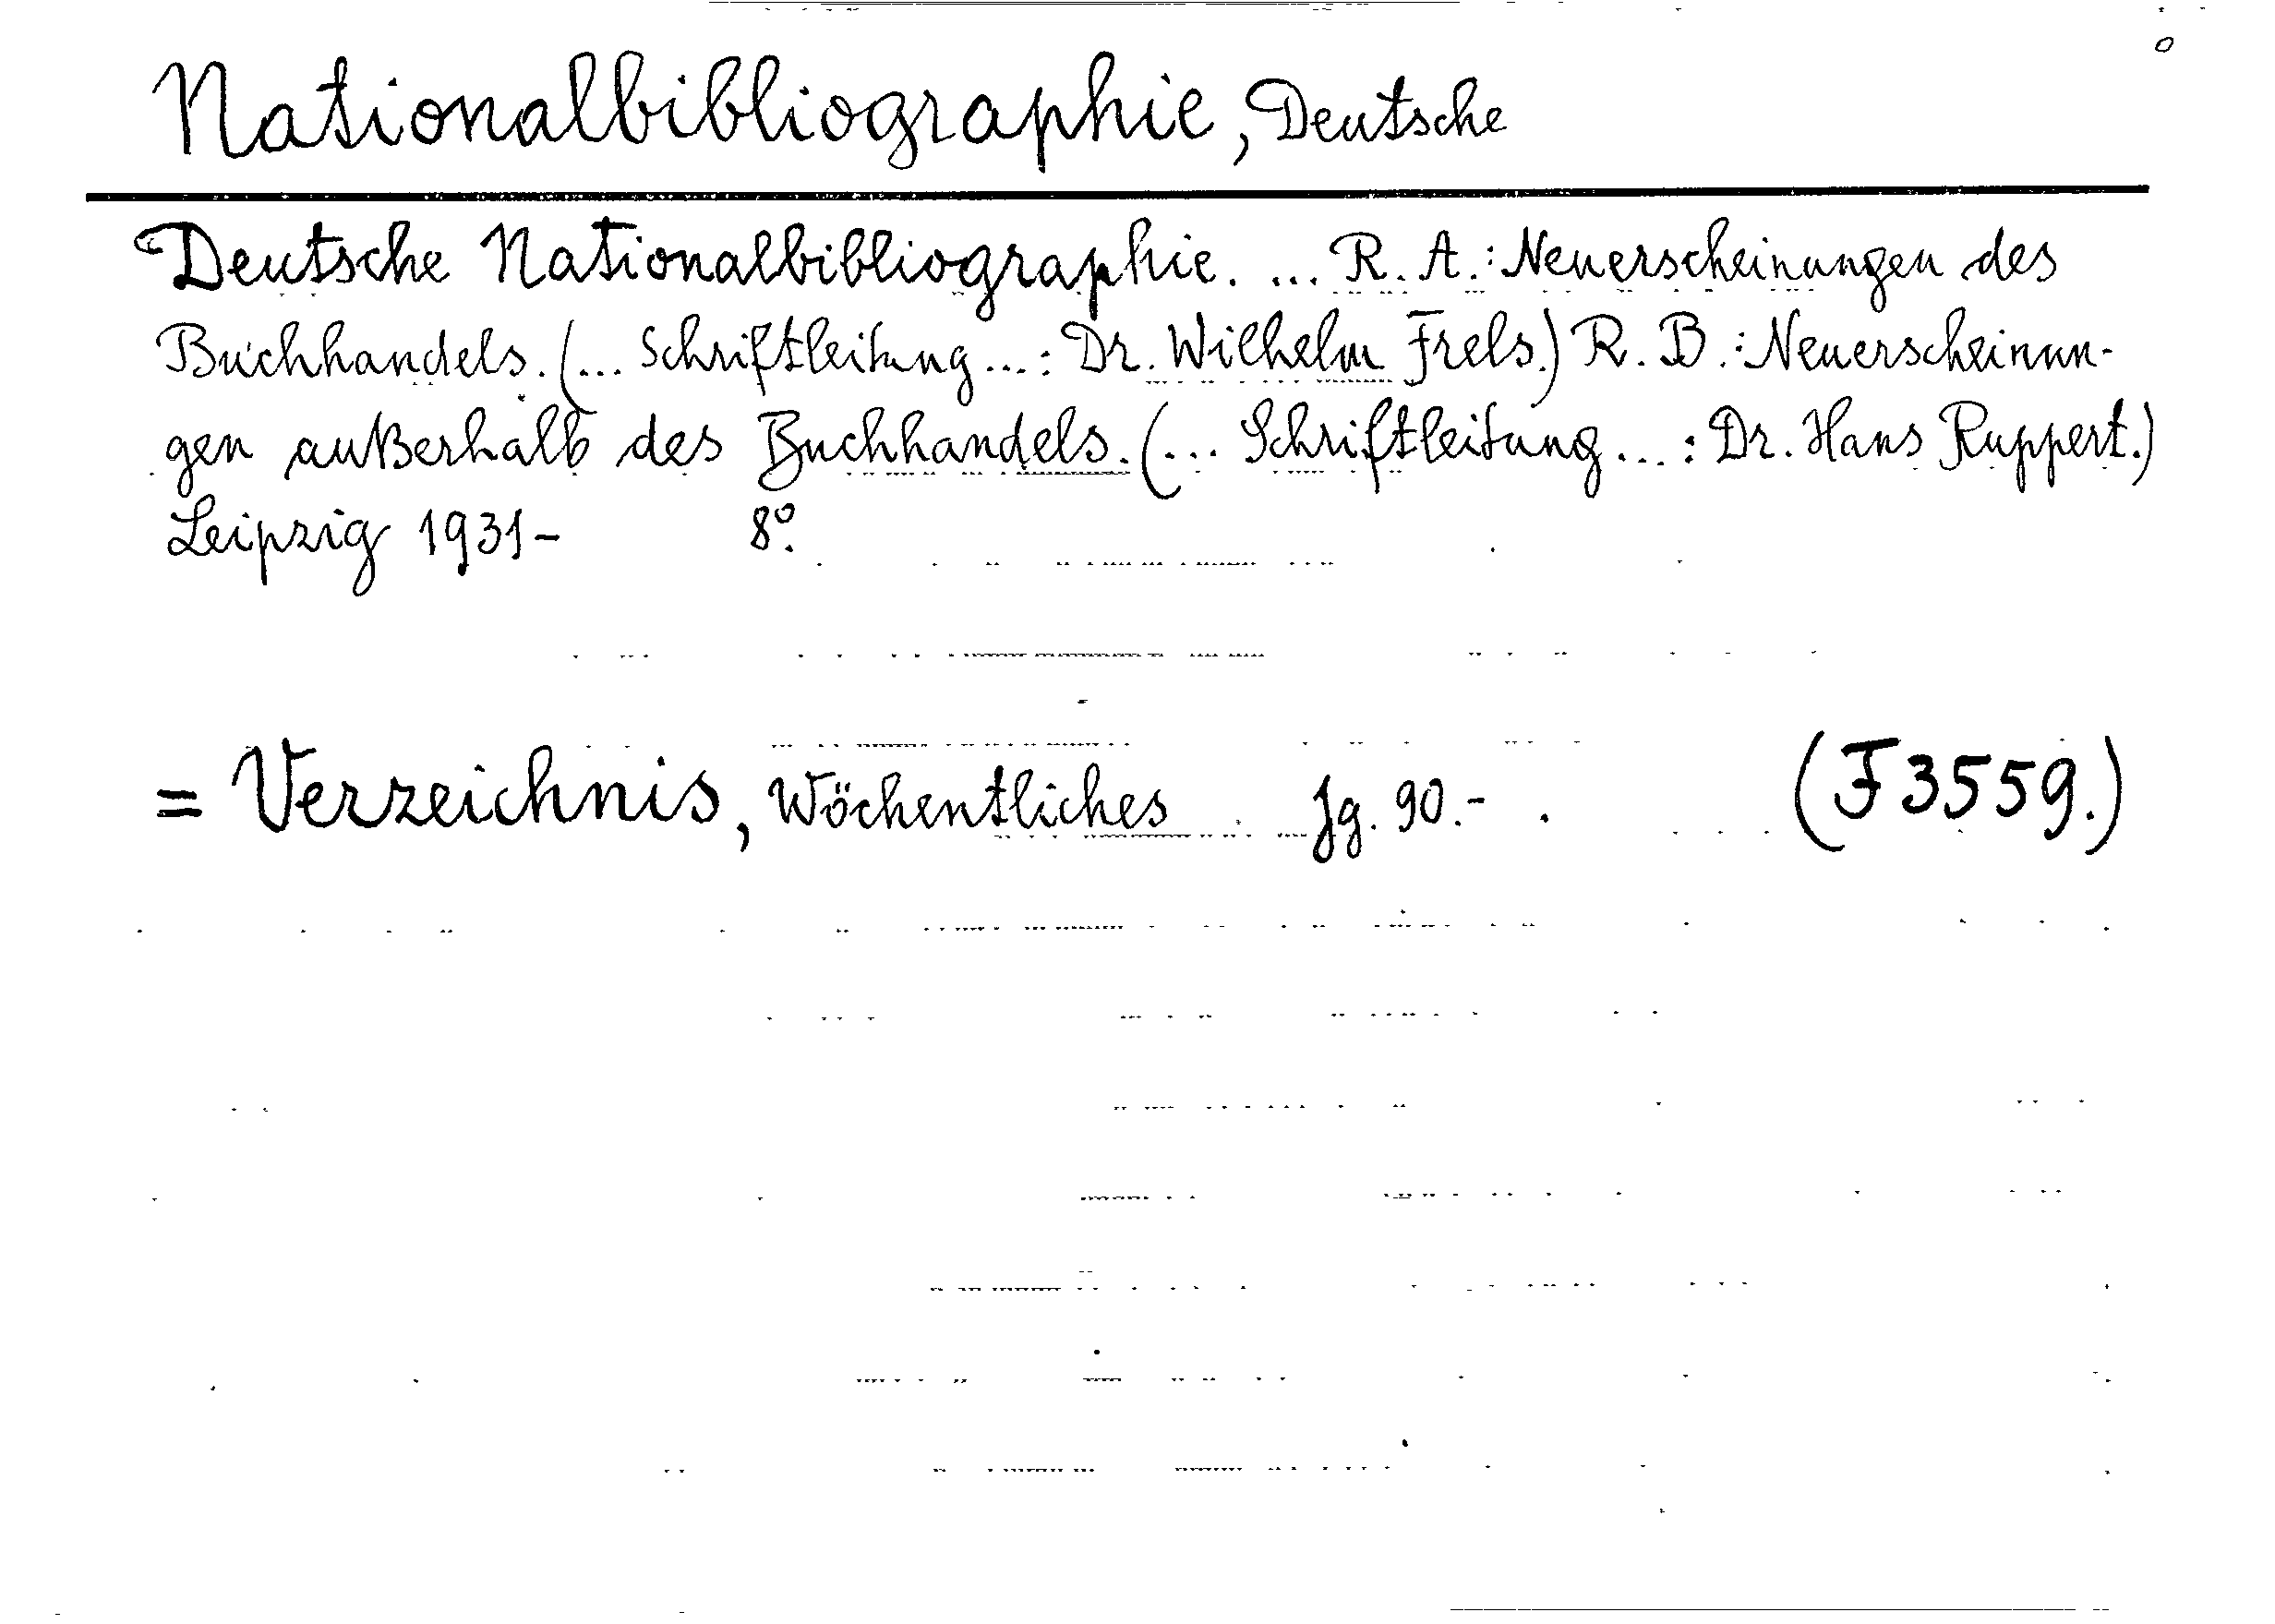 Nationalbibliographie, Deutsche
Deutsche Nationalbibliographie. ... R. A.: Neuerscheinungen des
Buchhandels. (... Schriftleitung ...: Dr. Wilhelm Frels.) R. B.: Neuerscheinun-
gen außerhalb des Buchhandels. (... Schriftleitung ...: Dr. Hans Ruppert.)
Leipzig 1931- 8°.
= Verzeichnis, Wöchentliches Jg. 90.- . (F 3559.)